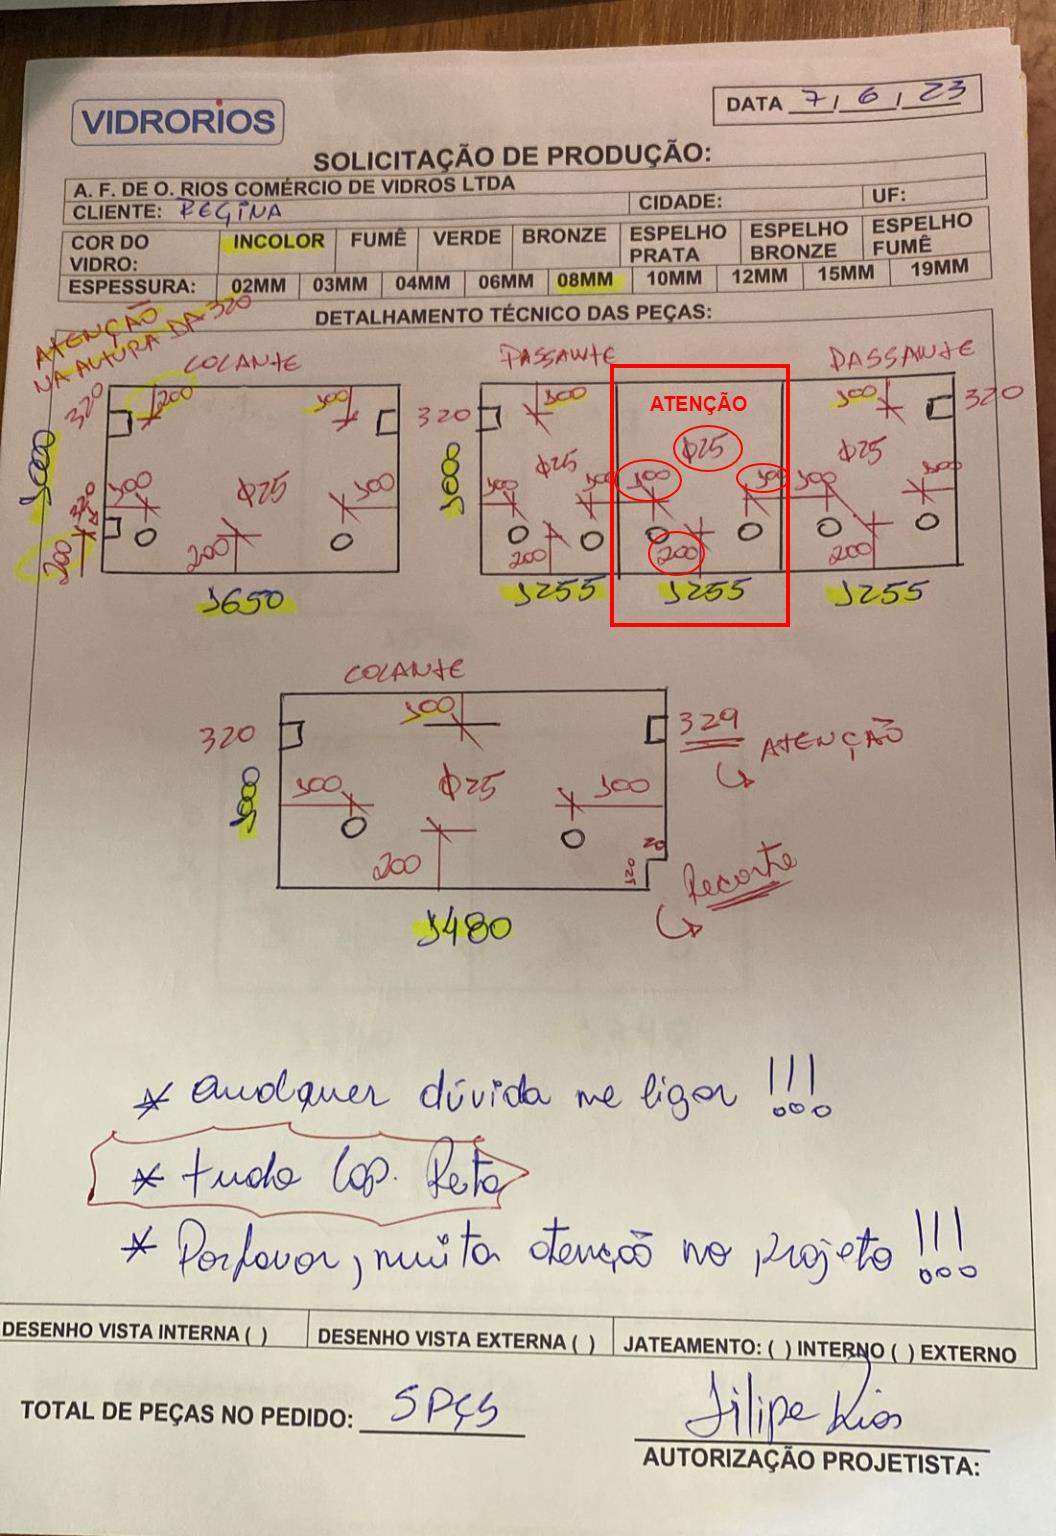 VIDRORIOS
DATA 7 / 6 / 23
SOLICITAÇÃO DE PRODUÇÃO:
A. F. DE O. RIOS COMÉRCIO DE VIDROS LTDA
CLIENTE: REGINA CIDADE: UF:
COR DO VIDRO: INCOLOR FUMÊ VERDE BRONZE ESPELHO PRATA ESPELHO BRONZE ESPELHO FUMÊ
ESPESSURA: 02MM 03MM 04MM 06MM 08MM 10MM 12MM 15MM 19MM
DETALHAMENTO TÉCNICO DAS PEÇAS:
ATENÇÃO
NA ALTURA DA 320
COLANTE
320 200 100
1000
320
100 Φ25 100
200 200
1650
PASSANTE PASSANTE
320 100 ATENÇÃO 100 320
1000 Φ25 Φ25 Φ25
100 100 100 100 100 100
200 200 200
1255 1255 1255
COLANTE
100
320 329 ATENÇÃO
1000
100 Φ25 100
200 20 Recorte
1480
* Qualquer dúvida me ligar !!!
* tudo Lap. Reta
* Por favor, muita atenção no projeto !!!
DESENHO VISTA INTERNA ( ) DESENHO VISTA EXTERNA ( ) JATEAMENTO: ( ) INTERNO ( ) EXTERNO
TOTAL DE PEÇAS NO PEDIDO: 5 PÇS
Filipe Rios
AUTORIZAÇÃO PROJETISTA: